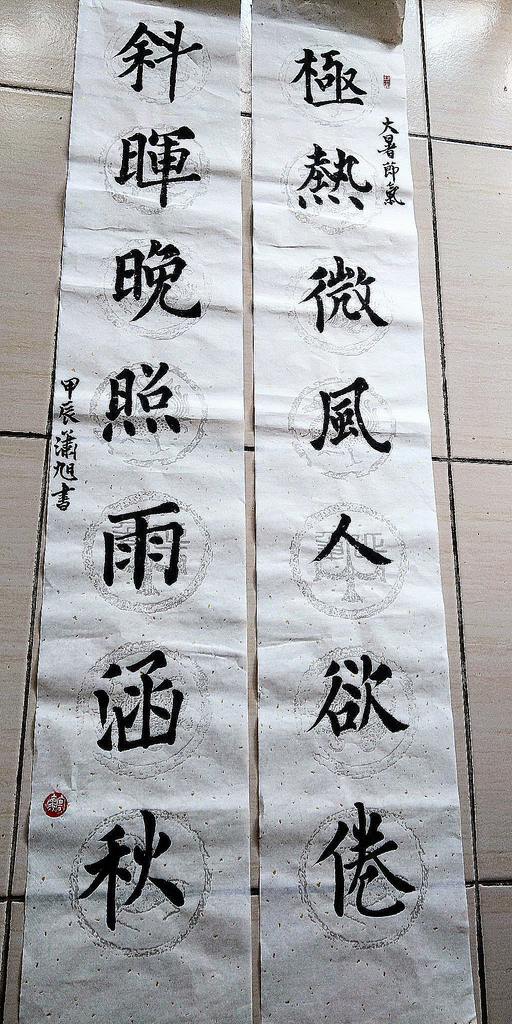 大暑節氣
極熱微風人欲倦
斜暉晚照雨涵秋
甲辰瀟旭書